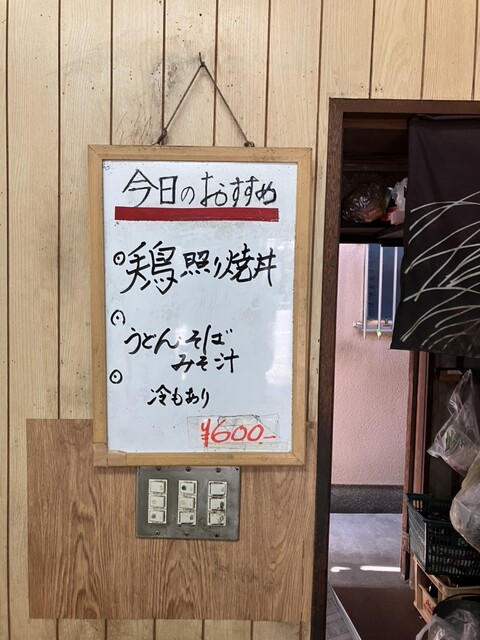 今日のおすすめ
⊙鶏照り焼丼
⊙うどん.そば
みそ汁
⊙冷もあり
¥600-